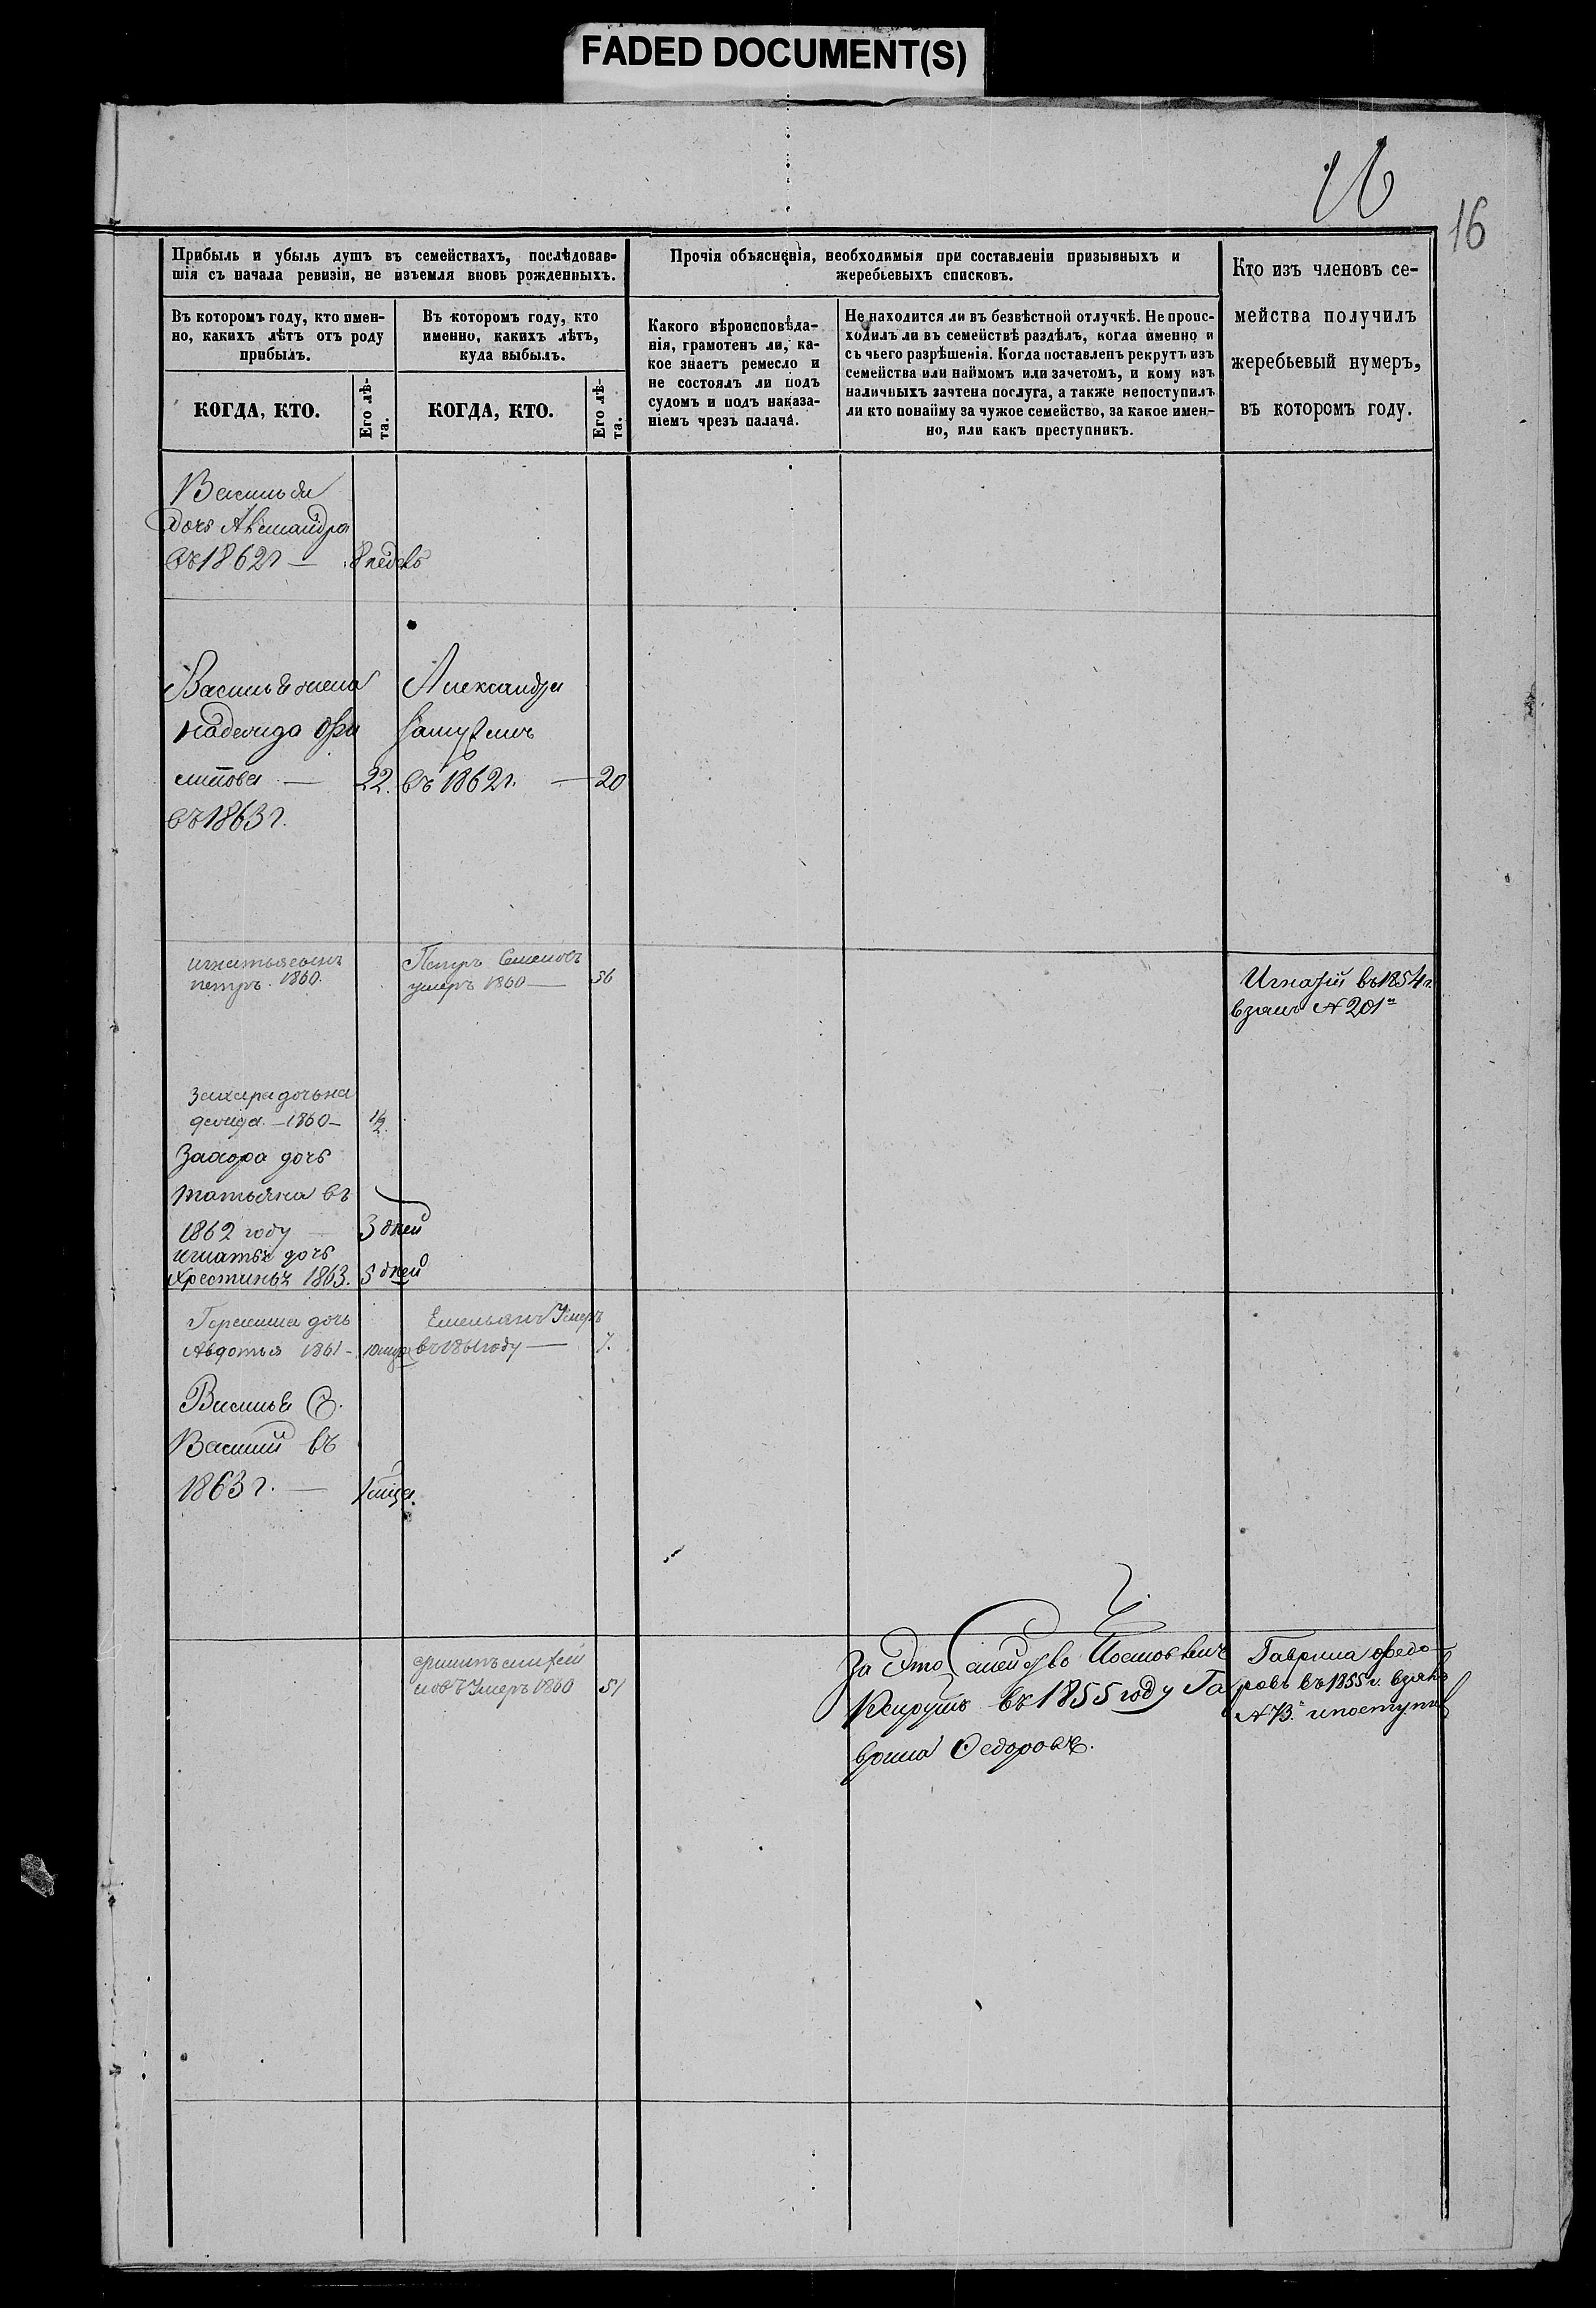 FADED DOCUMENT(S)
16
16
Прибыль и убыль душъ въ семействахъ, послѣдовав-
шія съ начала ревизіи, не изъемля вновь рожденныхъ.
Въ которомъ году, кто имен-
но, какихъ лѣтъ отъ роду
прибылъ.
КОГДА, КТО.
Его лѣ-
та.
Въ которомъ году, кто
именно, какихъ лѣтъ,
куда выбылъ.
КОГДА, КТО.
Его лѣ-
та.
Прочія объясненія, необходимыя при составленіи призывныхъ и
жеребьевыхъ списковъ.
Какого вѣроисповѣда-
нія, грамотенъ ли, ка-
кое знаетъ ремесло и
не состоялъ ли подъ
судомъ и подъ наказа-
ніемъ чрезъ палача.
Не находится ли въ безвѣстной отлучкѣ. Не проис-
ходилъ ли въ семействѣ раздѣлъ, когда именно и
съ чьего разрѣшенія. Когда поставленъ рекрутъ изъ
семейства или наймомъ или зачетомъ, и кому изъ
наличныхъ зачтена послуга, а также непоступилъ
ли кто понайму за чужое семейство, за какое имен-
но, или какъ преступникъ.
Кто изъ членовъ се-
мейства получилъ
жеребьевый нумеръ,
въ которомъ году.
дочь
въ 1862 г — 8 недель
Василья жена
надежда
22.
въ 1863 г.
Александра
въ 1862 г. — 20
игнатья сынъ
петръ. 1860.
Петръ Семеновъ
умеръ 1860 — 56
Игнатій въ 1854 г
взялъ № 201й
Захара дочь на
дежда. — 1860 — 1/2
Захара дочь
татьяна въ
1862 году 3 дней
игнатья дочь
Хрестинья 1863. 5 дней
Герасима дочь
Авдотья 1861 -
Емельянъ Умеръ
въ 1861 году — 7.
Василья С.
Василій въ
1863 г. —
Умеръ 1860 51
За Это Семейство
Рекрутъ въ 1855 году Га
врила Федоровъ.
Гаврила Федо
ровъ въ 1855 г. взялъ
№ 73й и поступилъ